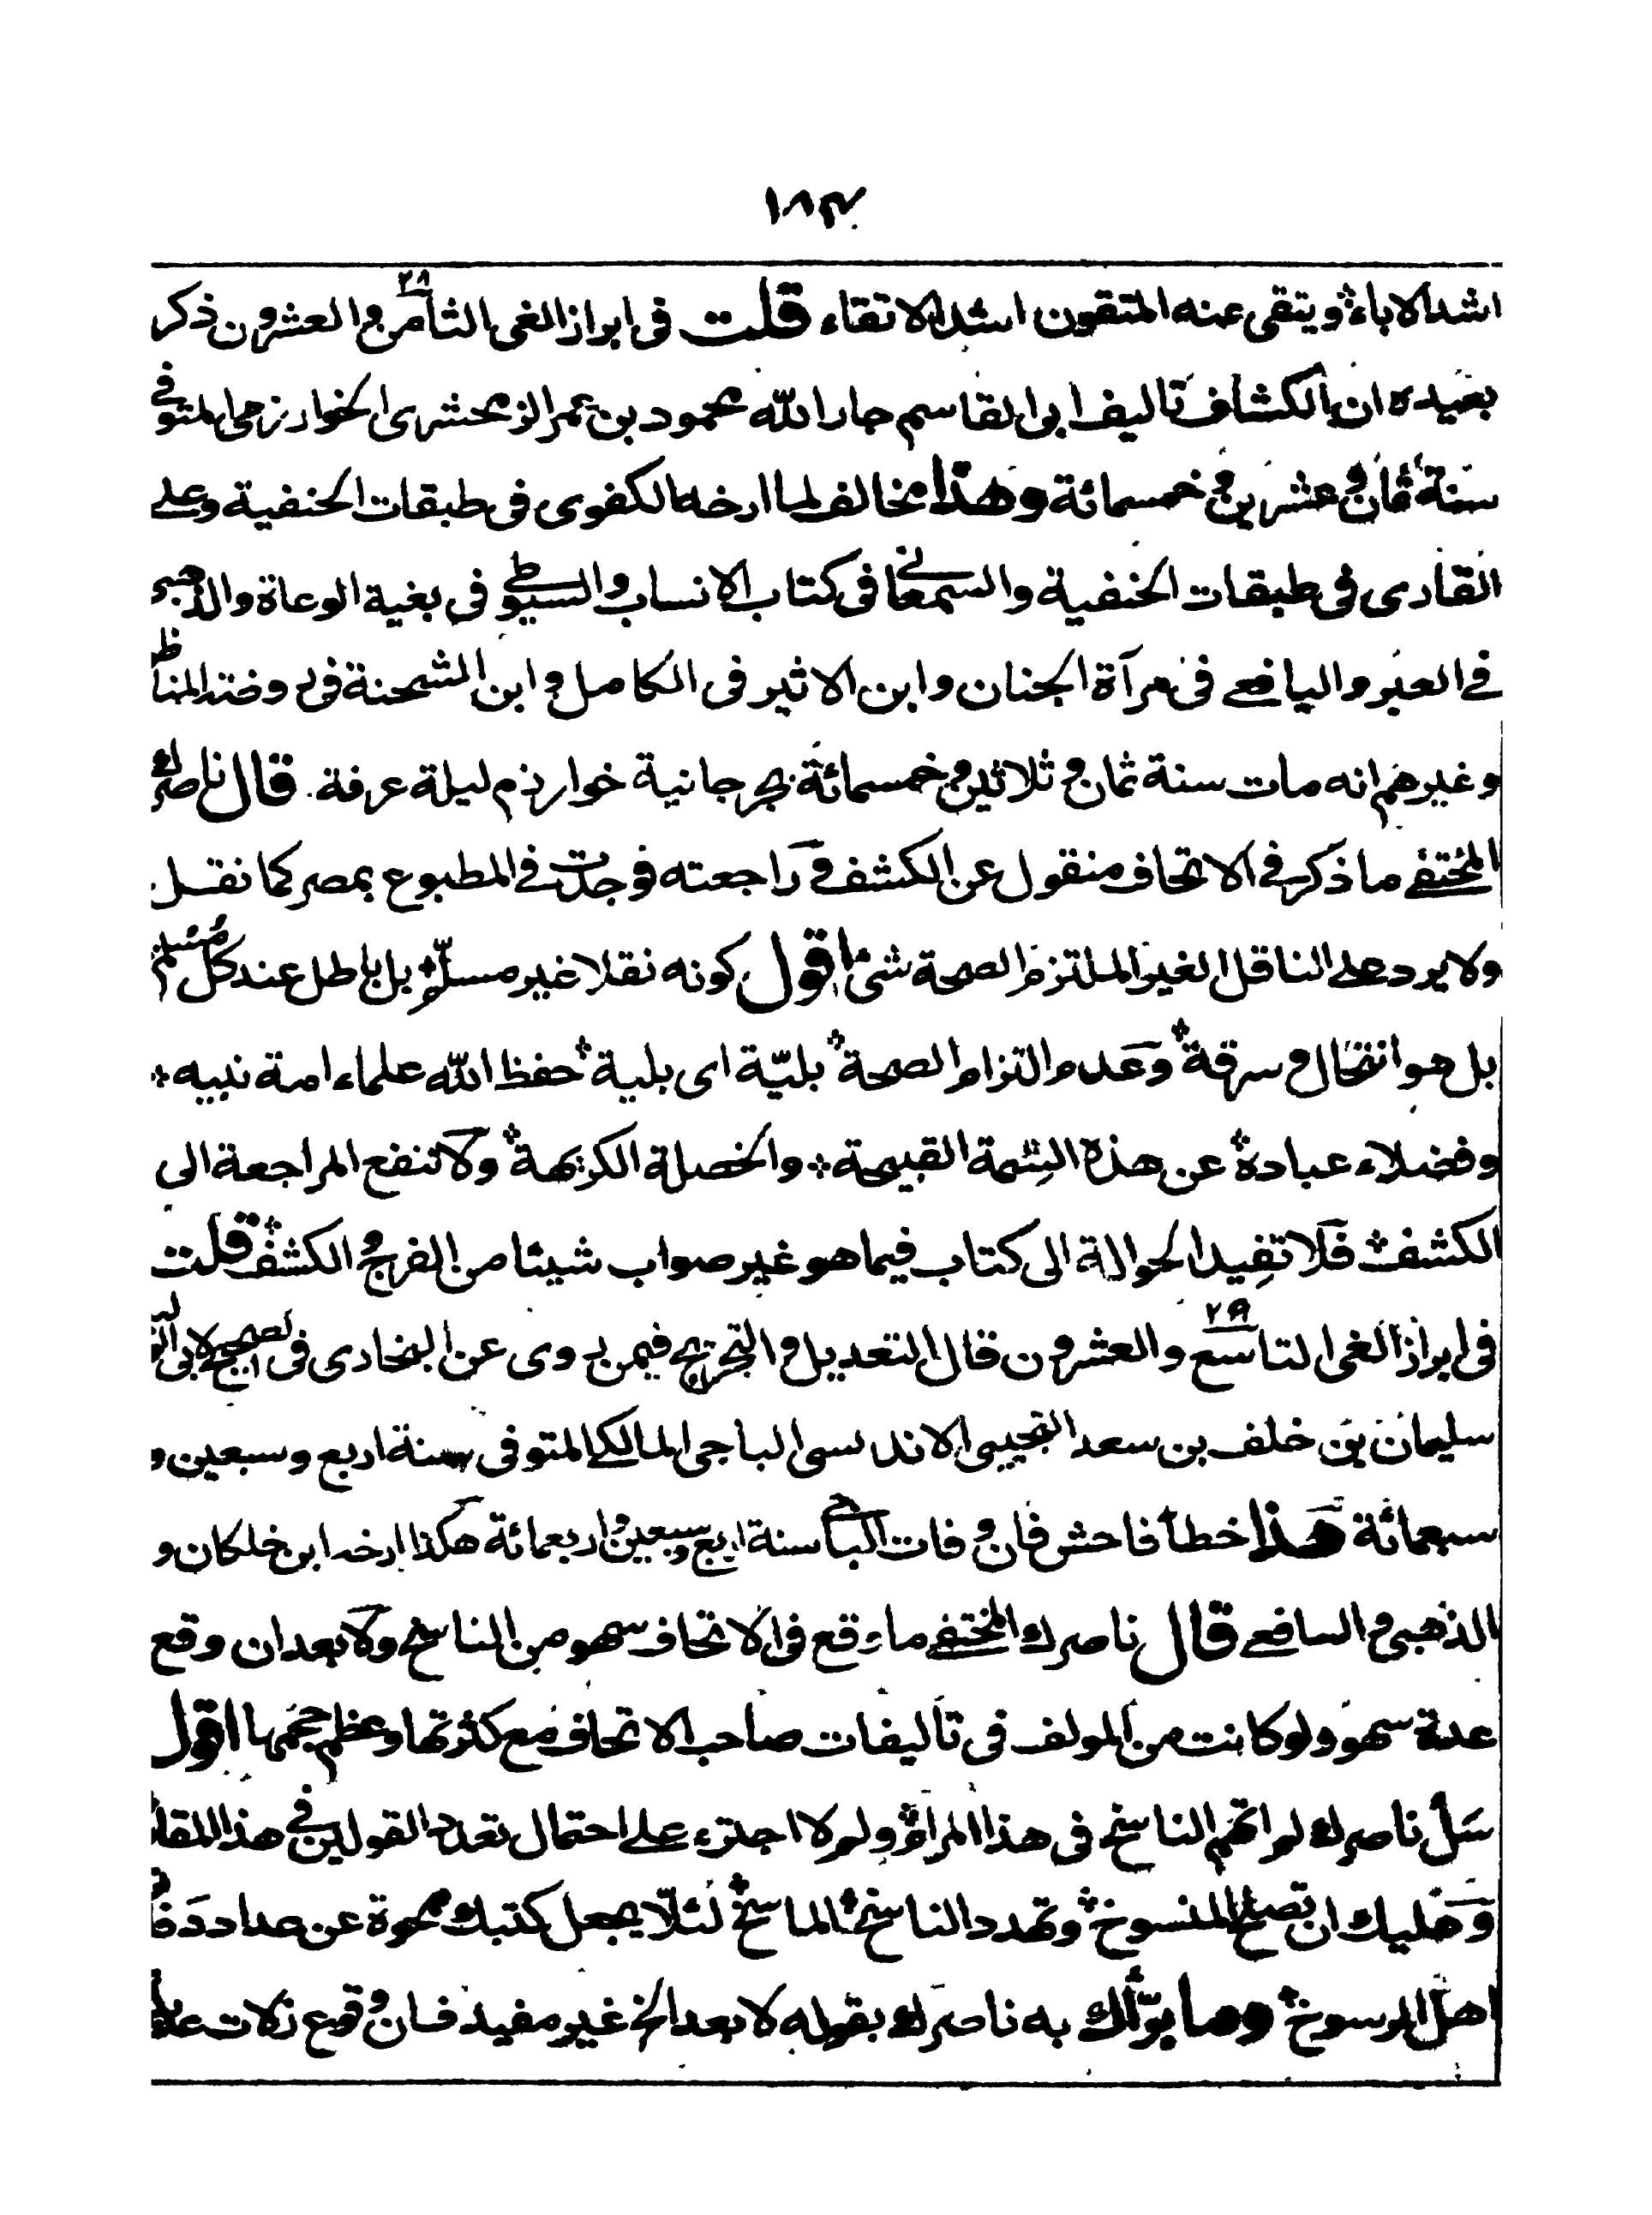 ١٨٣
اشد الاباء ؞ ويتقى عنه المتقون اشد الاتقاء قلت فى ابراز الغى الثامن ٢٨ والعشرون ذكر
بعيده ان الكشاف تاليف ابى القاسم جار الله محمود بن عمر الزمخشرى الخوارزمى المتوفى
سنة ثمان وعشرين وخمسمائة وهذا مخالف لما ارخه الكفوى فى طبقات الحنفية وعلى
القارى فى طبقات الحنفية والسمعانى فى كتاب الانساب والسيوطى فى بغية الوعاة والذهبى
فى العبر واليافعى فى مرآة الجنان وابن الاثير فى الكامل وابن الشحنة فى روضة المناظر
وغيرهم انه مات سنة ثمان وثلاثين وخمسمائة بجرجانية خوارزم ليلة عرفة. قال ناصرك
المختفى ما ذكر فى الاتحاف منقول عن الكشف وقد راجعته فوجدت فى المطبوع بمصر كما نقل
ولا يرد على الناقل الغير الملتزم الصحة شئ اقول كونه نقلا غير مسلّم ؞ بل باطل عند كل مسلم
بل هو انتحال وسرقة ؞ وعدم التزام الصحة ؞ بليّة اى بلية ؞ حفظ الله علماء امة نبيه ؞
وفضلاء عباده ؞ عن هذه الشيمة القبيحة ؞ والخصلة الكريهة ؞ ولا تنفع المراجعة الى
الكشف ؞ فلا تفيد الحوالة الى كتاب فيما هو غير صواب شيئا من الفرج والكشف ؞ قلت
فى ابراز الغى التاسع ٢٩ والعشرون قال التعديل والتجريح فيمن روى عن البخارى فى الصحيح لابى الوليد
سليمان بن خلف بن سعد التجيبى الاندلسى الباجى المالكى المتوفى سنة اربع وسبعين و
سبعمائة هذا خطأ فاحش فان وفات الباجى سنة اربع وسبعين واربعمائة هكذا ارخه ابن خلكان و
الذهبى واليافعى قال ناصرك المختفى ما وقع فى الاتحاف سهو من الناسخ ولا بعد ان وقع
عدة سهو ولو كانت من المولف فى تاليفات صاحب الاتحاف مع كثرتها وعظم حجمها اقول
سل ناصرك لم اتهم الناسخ فى هذا المرام ؞ ولم لا اجترء على احتمال تعدد القولين فى هذا المقام
وعليك ان تصلح المنسوخ ؞ وتهدد الناسخ ؞ الماسخ ؞ لئلّا يجعل كتبك ممحوة عن صدا ددة
اهل الرسوخ ؞ وما برّأك به ناصرك بقوله لا بعد الخ غير مفيد فان وقوع زلات